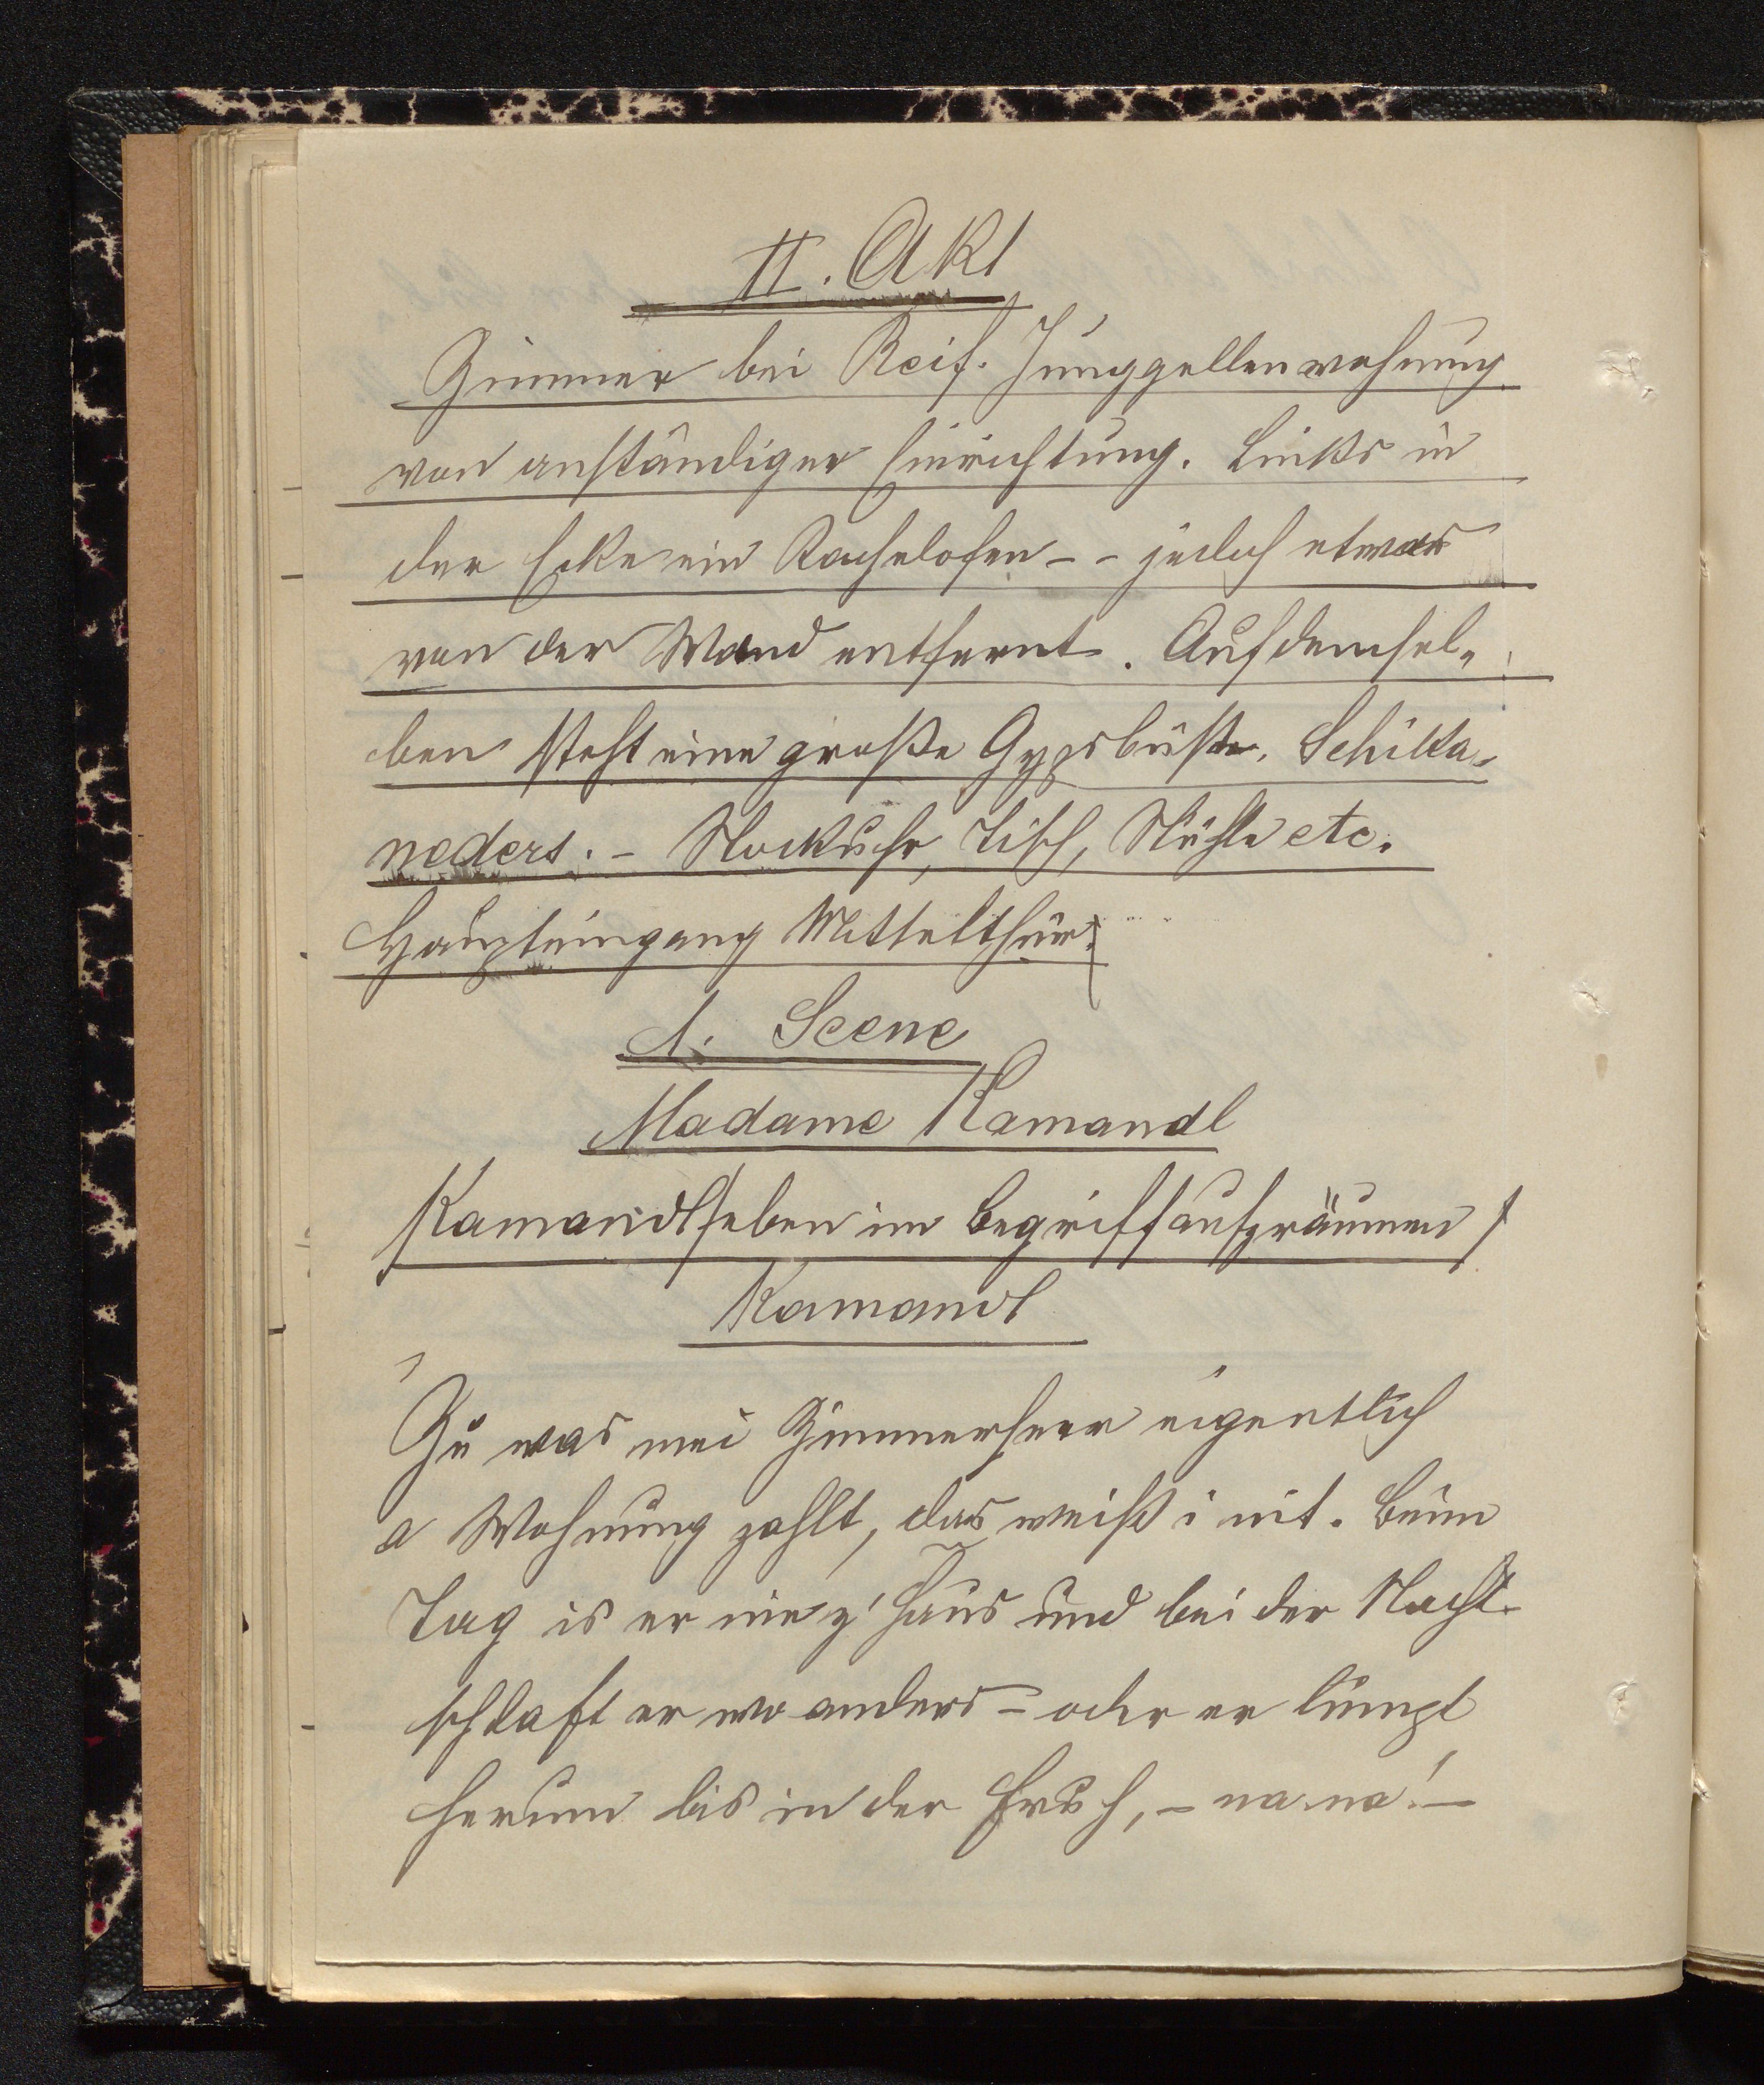 II. Akt
Zimmer bei Reif. Junggellenwohnung
von anständiger Einrichtung. Links in
der Ecke ein Kachelofen – – jedoch etwas
von der Wand entfernt. Auf demsel-
ben steht eine große Gypsbüste. Schika-
neders. – Stockuhr, Tisch, Stühle etc.
Haupteingang Mittelthür.
1. Scene
Madame Kamandl
Kamandl / eben im Begriff aufzräumen /
Kamandl
Zu was mei Zimmerherr eigentlich
a Wohnung zahlt, das weiß i nit. Beim
Tag is er nie z' Haus und bei der Nacht
schlaft er wo anders – oder er lumpt
herum bis in der Fruh, – na na! –